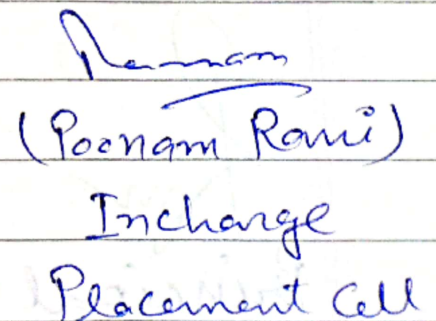 Poonam
(Poonam Rani)
Incharge
Placement Cell